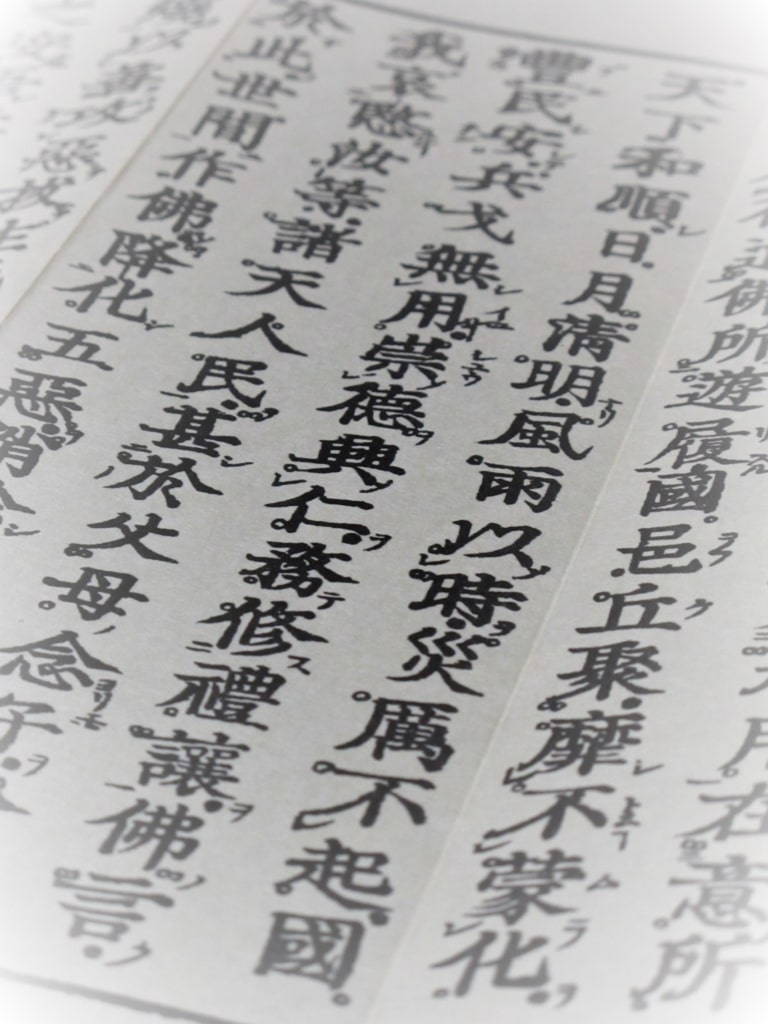 在意所
佛所遊履國邑丘聚靡不蒙化
天下和順日月清明風雨以時災厲不起國
澧民安兵戈無用崇德興仁務修禮讓佛言
我哀愍汝等諸天人民甚於父母念子
於此世間作佛降化五惡消
以善攻惡拔生